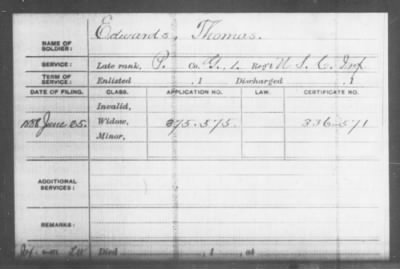 Edwards, Thomas.
NAME OF SOLDIER:
SERVICE: Late rank, P. Co. G, 1. Reg't U. S. C. Inf
TERM OF SERVICE: Enlisted , 1 Discharged , 1
DATE OF FILING. CLASS. APPLICATION NO. LAW. CERTIFICATE NO.
Invalid,
1888 June 25. Widow, 375.575 336.571
Minor,
ADDITIONAL SERVICES:
REMARKS:
Died , 1 , at